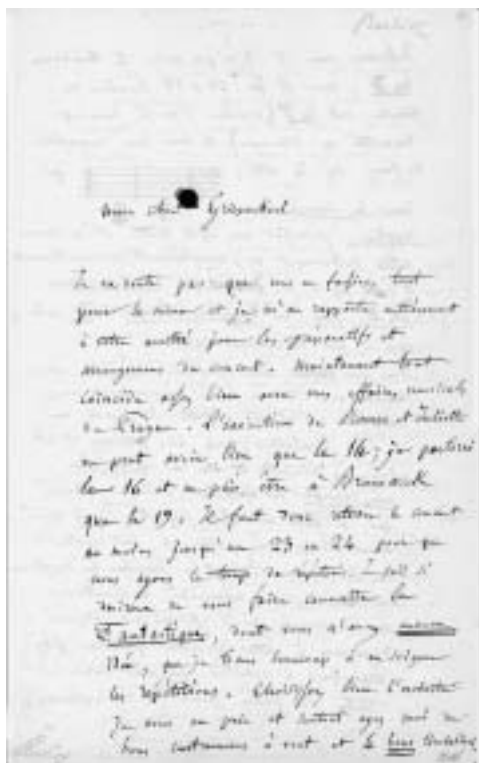 Berlioz
mon cher Griepenkerl
Je ne doute pas que vous ne fassiez tout
pour le mieux et je m'en rapporte entièrement
à votre amitié pour les préparatifs et
du concert. Maintenant tout
coïncide assez bien avec mes affaires musicales
de Prague. L'exécution de Romeo et Juliette
ne peut avoir lieu que le 14; je partirai
le 16 et ne puis être à Brunswick
que le 19. Il faut donc retarder le concert
au moins jusqu'au 23 ou 24 pour que
nous ayons le temps de répéter. Je suis si
de vous faire connaître la
Fantastique, dont vous n'avez aucune
idée, que je tiens beaucoup à en soigner
les répétitions. Choisissez bien l'orchestre
je vous en prie et surtout ayez soin
bons à vent et de bons